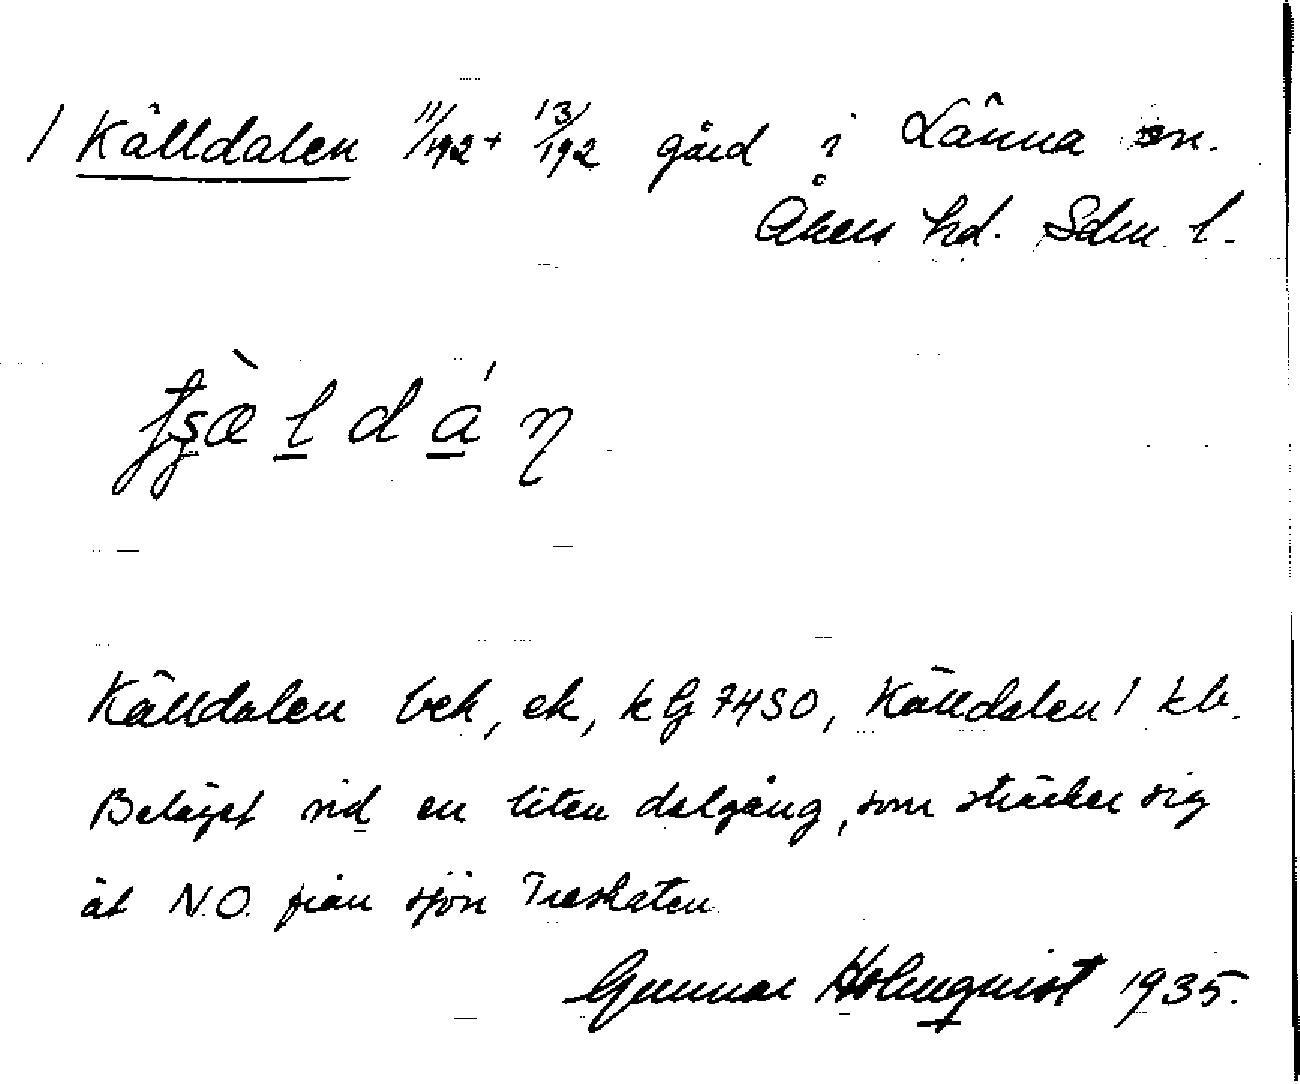 1 Källdalen 11/192 + 13/192 gård i Länna sn.
Åkers hd. Sdm l.
Källdalen bek, ek, kG 7450, Källdalen 1 kb.
Beläget vid en liten dalgång, som sträcker sig
åt N.O. från sjön Treskaten
Gunnar Holmquist 1935.